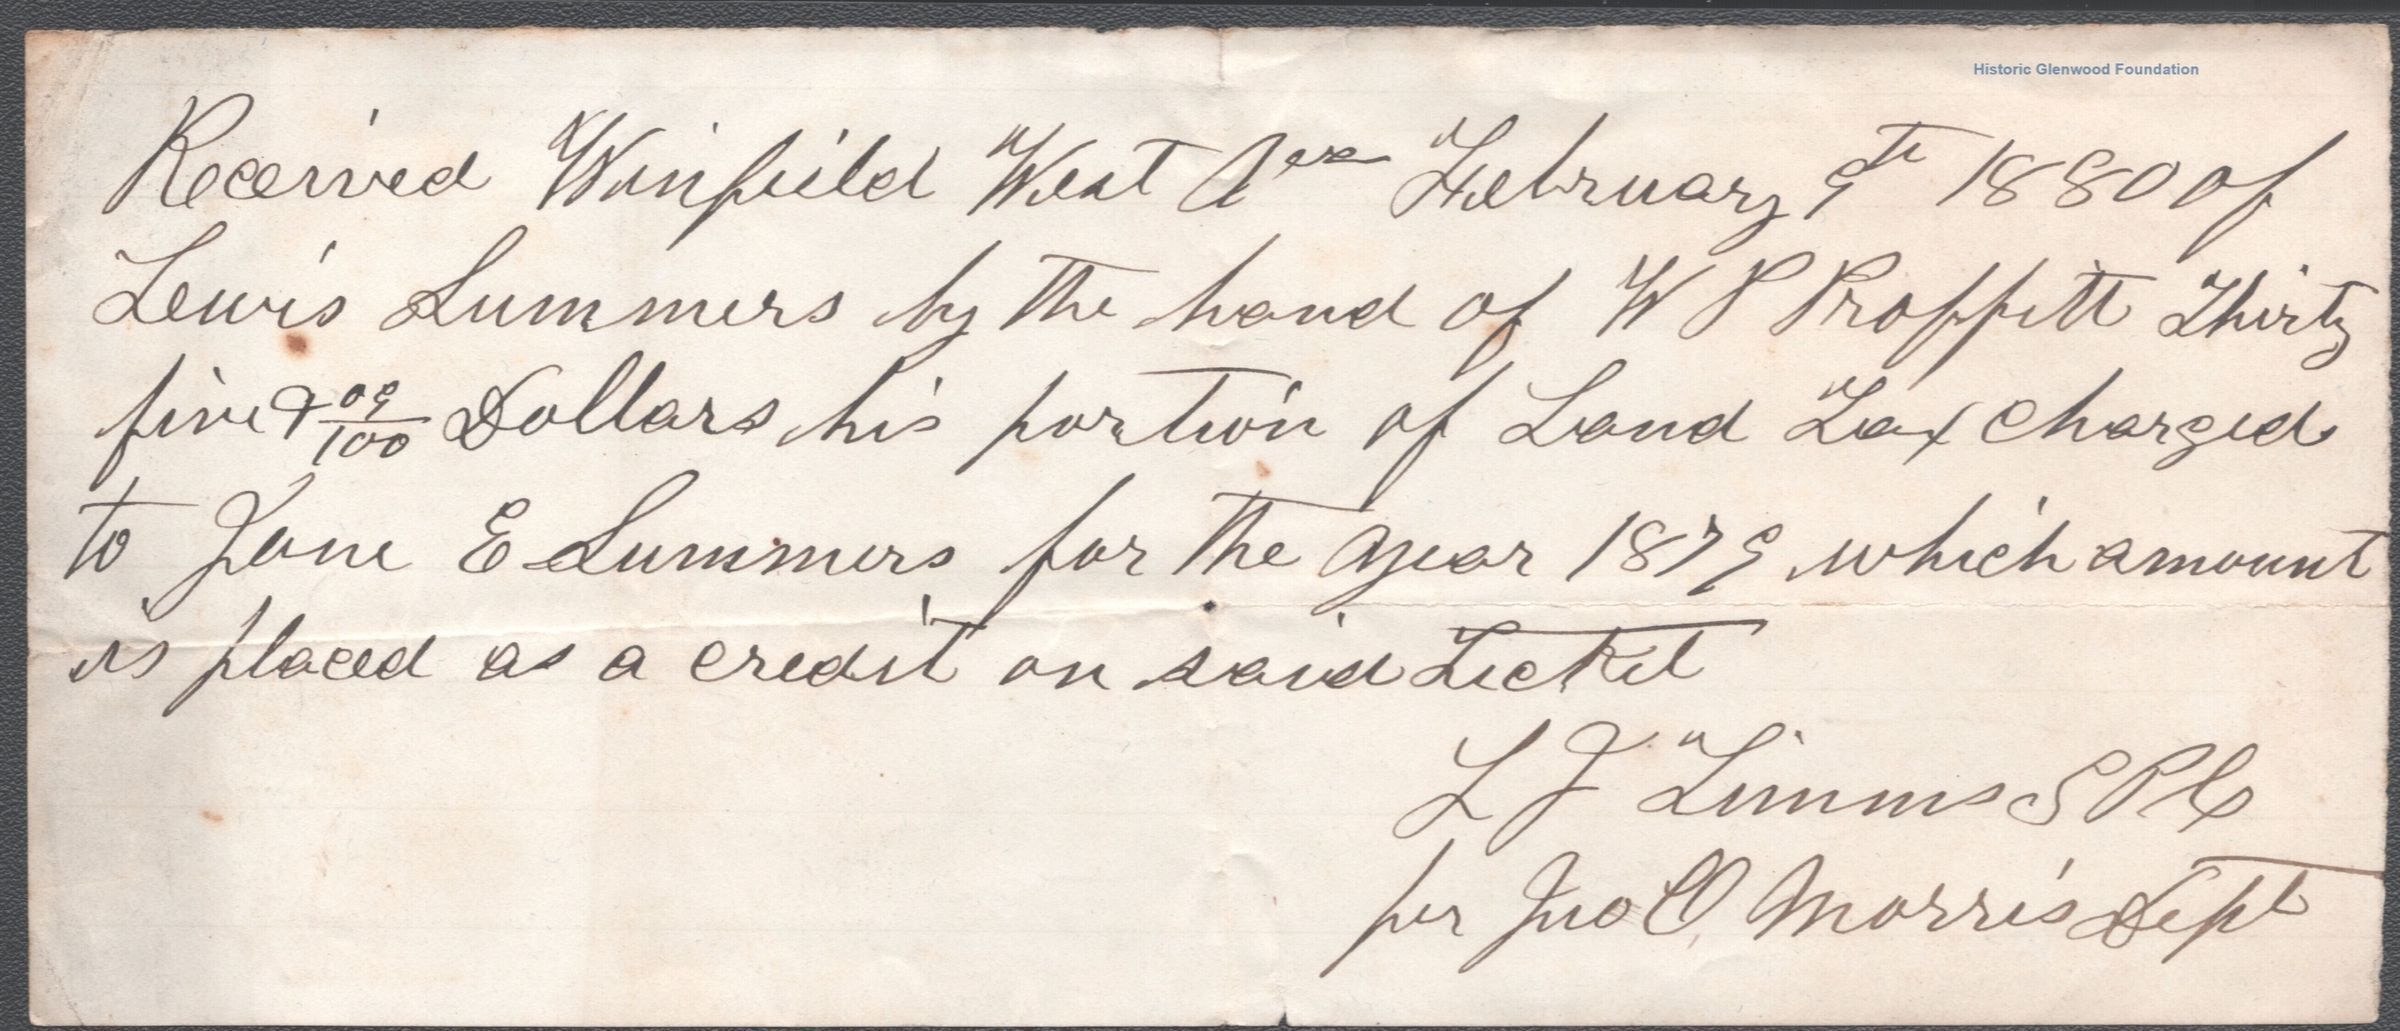 Historic Glenwood Foundation
Received Winfield West Va February 9th 1880 of
Lewis Summers by the hand of W P Proffitt Thirty
five & 09/100 Dollars his portion of Land Tax charged
to Jane E Summers for the year 1879 which amount
is placed as a credit on said Ticket
L J Timms S P C
per Jno C Morris Dept